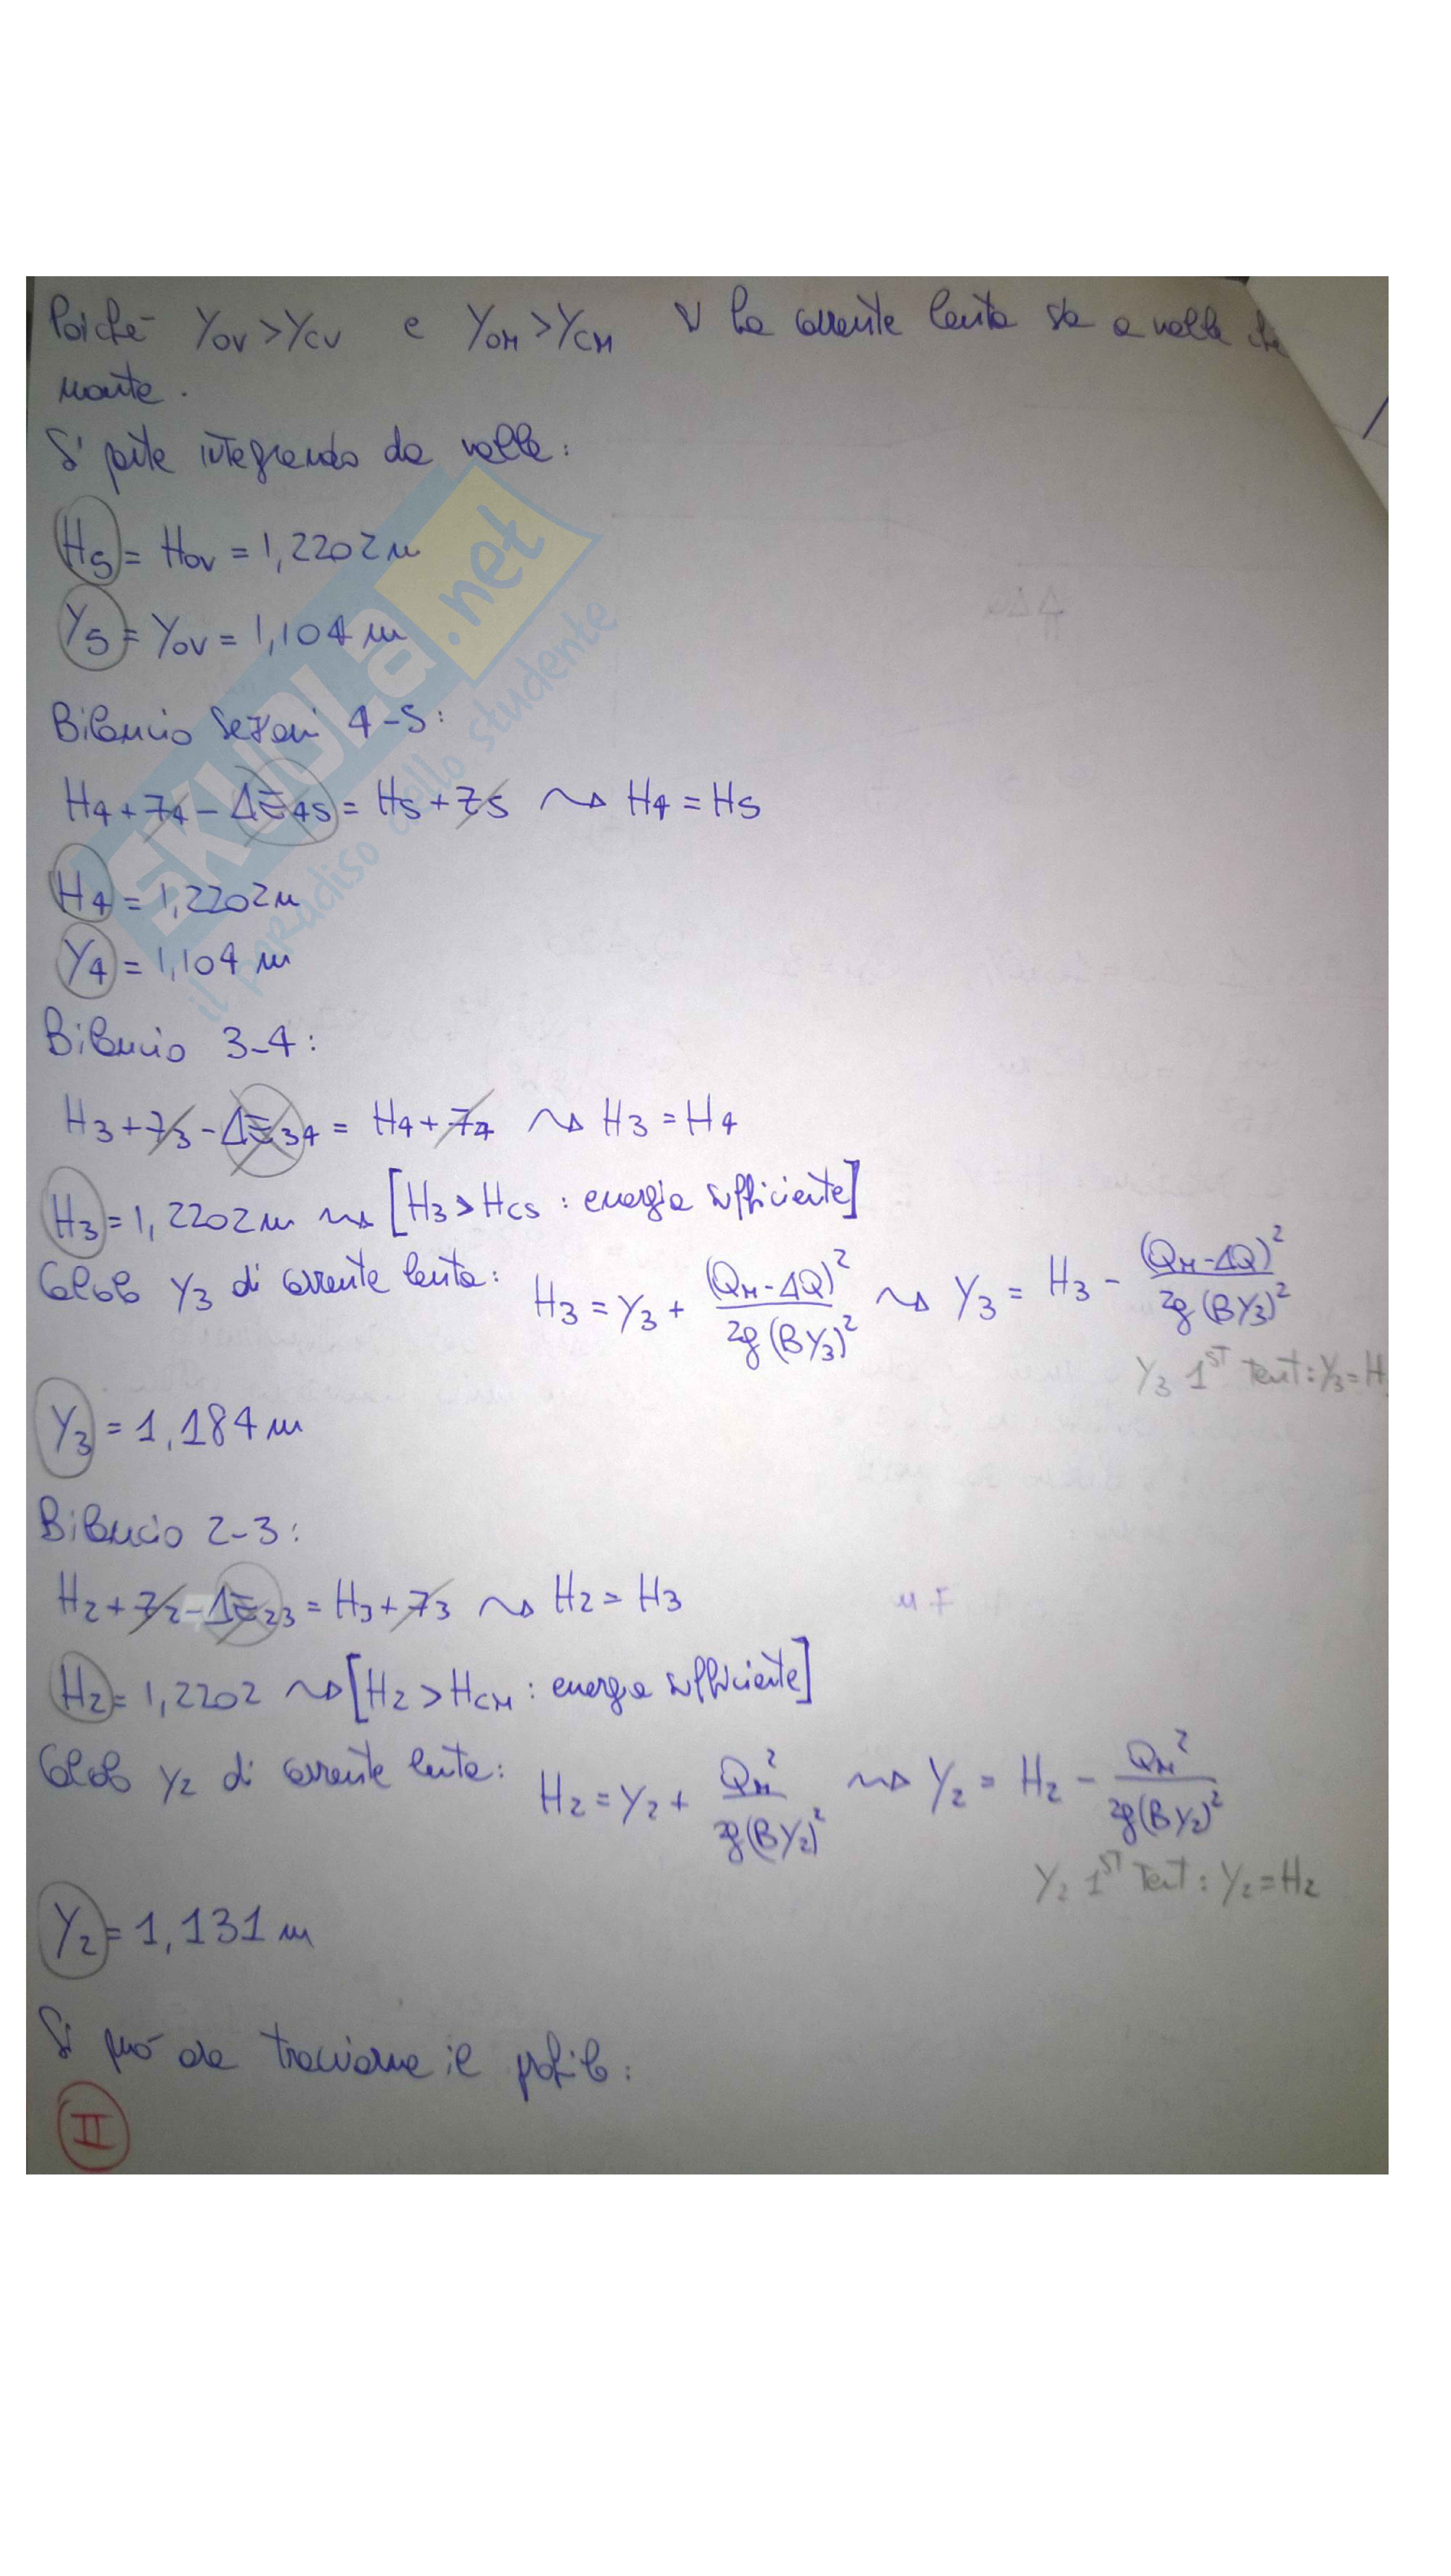 Poiché Y0V > YCV e Y0M > YCM la corrente lenta sia a valle che
monte.
Si parte integrando da valle:
H5 = H0V = 1,2202 m
Y5 = Y0V = 1,104 m
Bilancio sezioni 4-5:
H4 + z4 - ΔE45 = H5 + z5 ⇝ H4 = H5
H4 = 1,2202 m
Y4 = 1,104 m
Bilancio 3-4:
H3 + z3 - ΔE34 = H4 + z4 ⇝ H3 = H4
H3 = 1,2202 m ⇝ [H3 > HCS : energia sufficiente]
Calcolo Y3 di corrente lenta: H3 = Y3 + (QM-ΔQ)²/2g(BY3)² ⇝ Y3 = H3 - (QM-ΔQ)²/2g(BY3)²
Y3 1ST Tent: Y3 = H
Y3 = 1,184 m
Bilancio 2-3:
H2 + z2 - ΔE23 = H3 + z3 ⇝ H2 = H3
H2 = 1,2202 ⇝ [H2 > HCM : energia sufficiente]
Calcolo Y2 di corrente lenta: H2 = Y2 + QM²/2g(BY2)² ⇝ Y2 = H2 - QM²/2g(BY2)²
Y2 1ST Tent: Y2 = H2
Y2 = 1,131 m
Si può ora tracciare il profilo:
II
SKUOLa.net
il paradiso dello studente